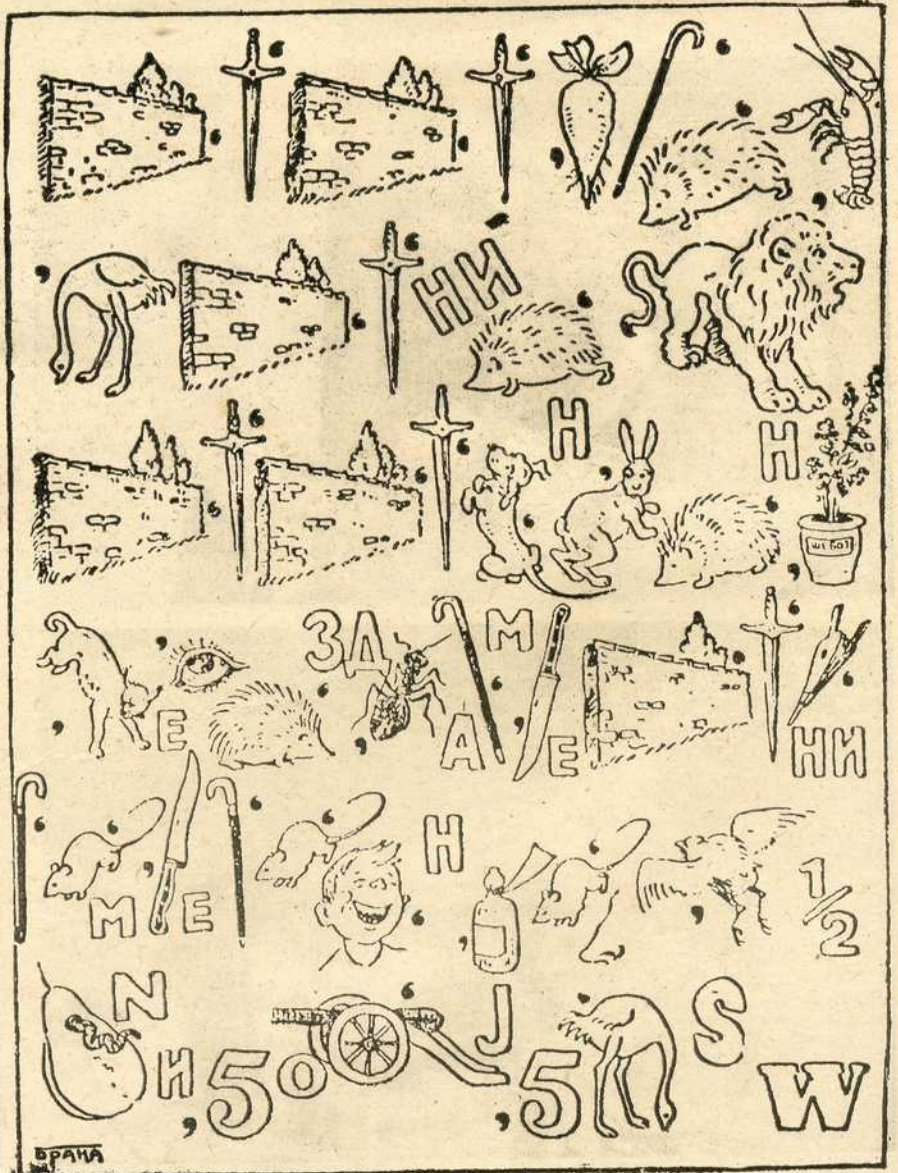 НИ
Н Н
ШЕБОЈ
Е ЗД А М Е НИ
М Е Н 1/2
N И 5 О J 5 S W
БРАНА